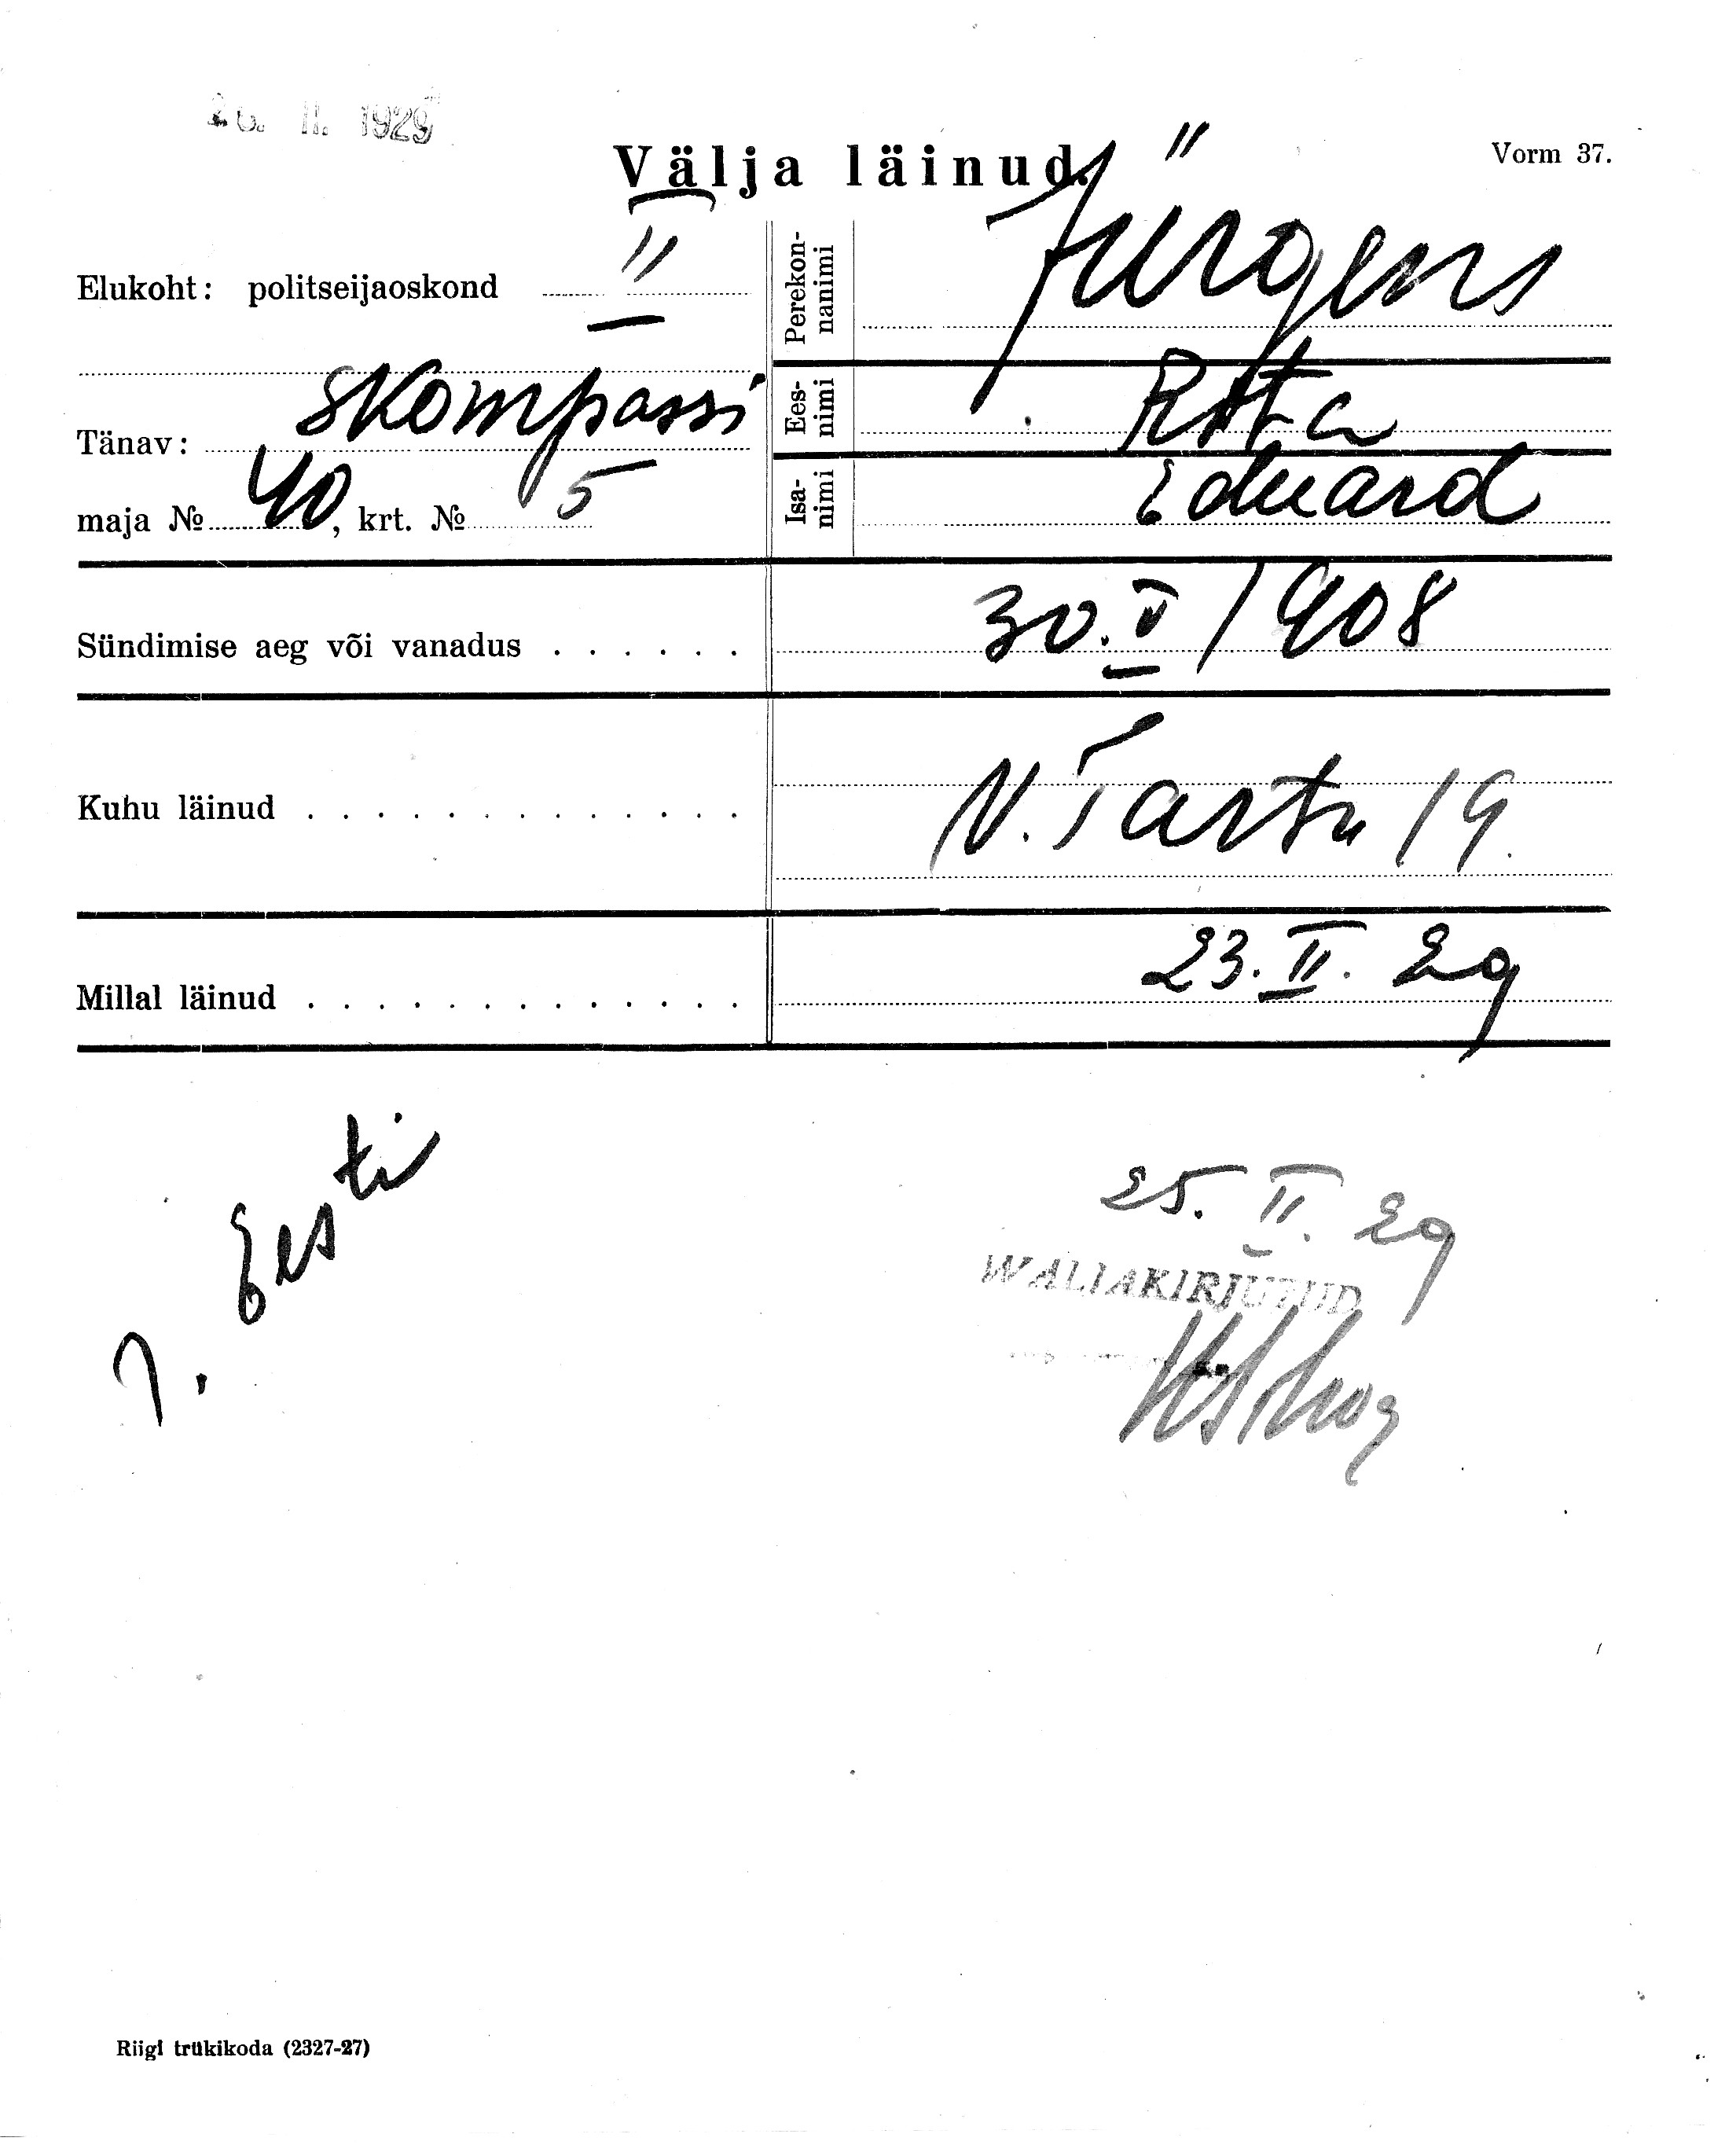 26. II. 1929
Välja läinud.
Vorm 37.
Elukoht: politseijaoskond II
Tänav: Kompassi
maja № 40, krt. № 5
Perekon-
nanimi
Jürgens
Ees-
nimi
Rita
Isa-
nimi
Eduard
Sündimise aeg või vanadus . . . . . . 30. V 1908
Kuhu läinud . . . . . . . . . . . . . N. Tartu 19.
Millal läinud . . . . . . . . . . . . . 23. II. 29
Eesti
25. II. 29
WÄLJAKIRJUTUD
Riigi trükikoda (2327-27)